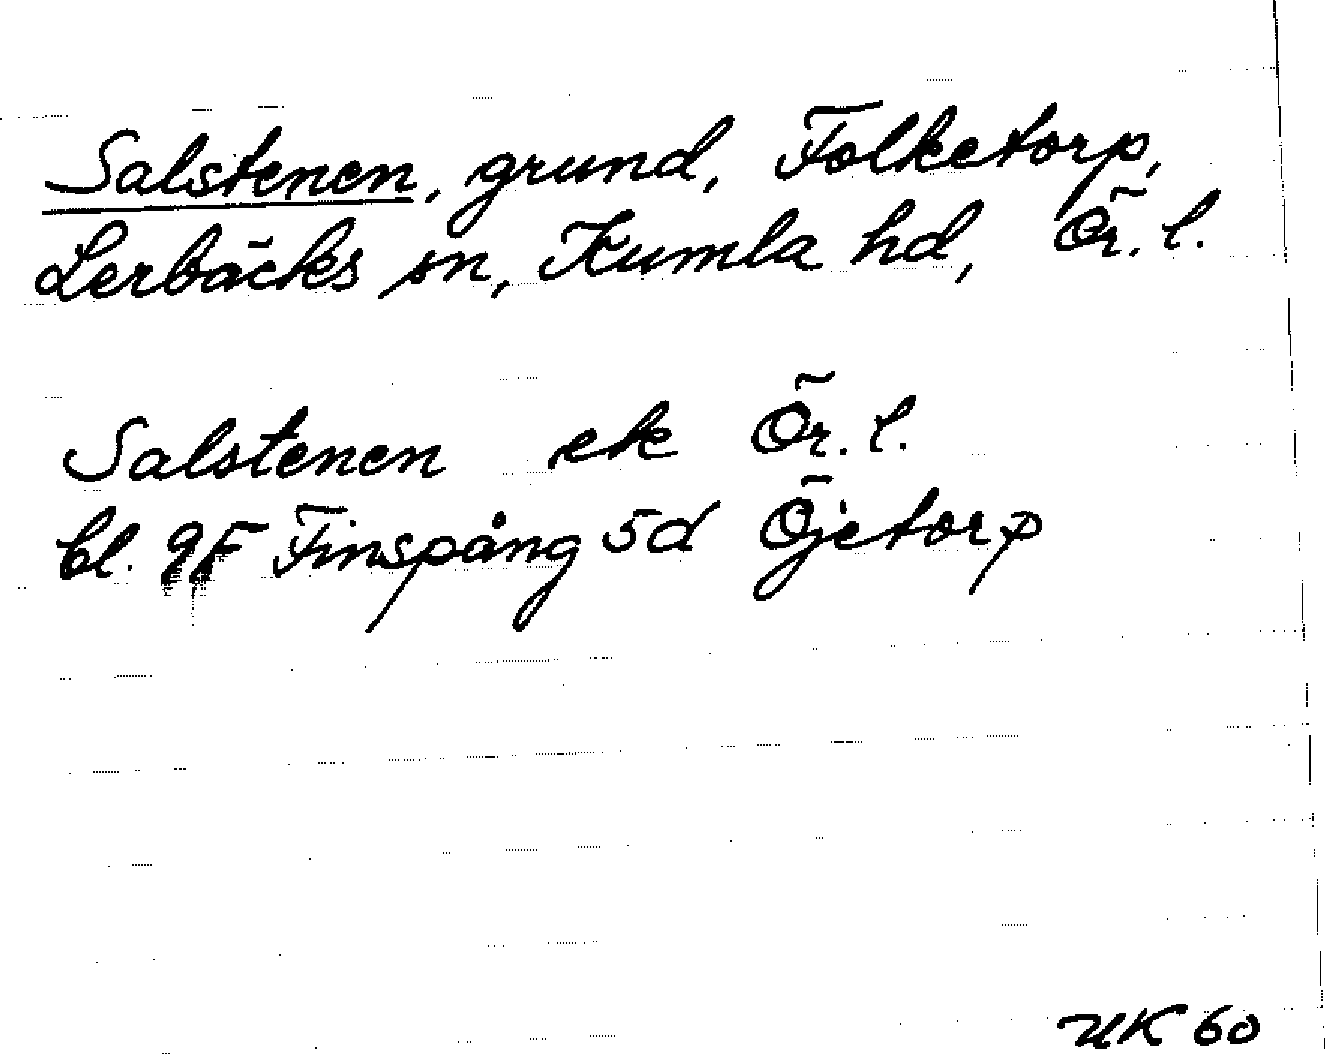 Salstenen, grund, Folketorp,
Lerbäcks sn, Kumla hd, Ör. l.
Salstenen ek Ör. l.
bl. 9F Finspång 5d Öjetorp
UK 60